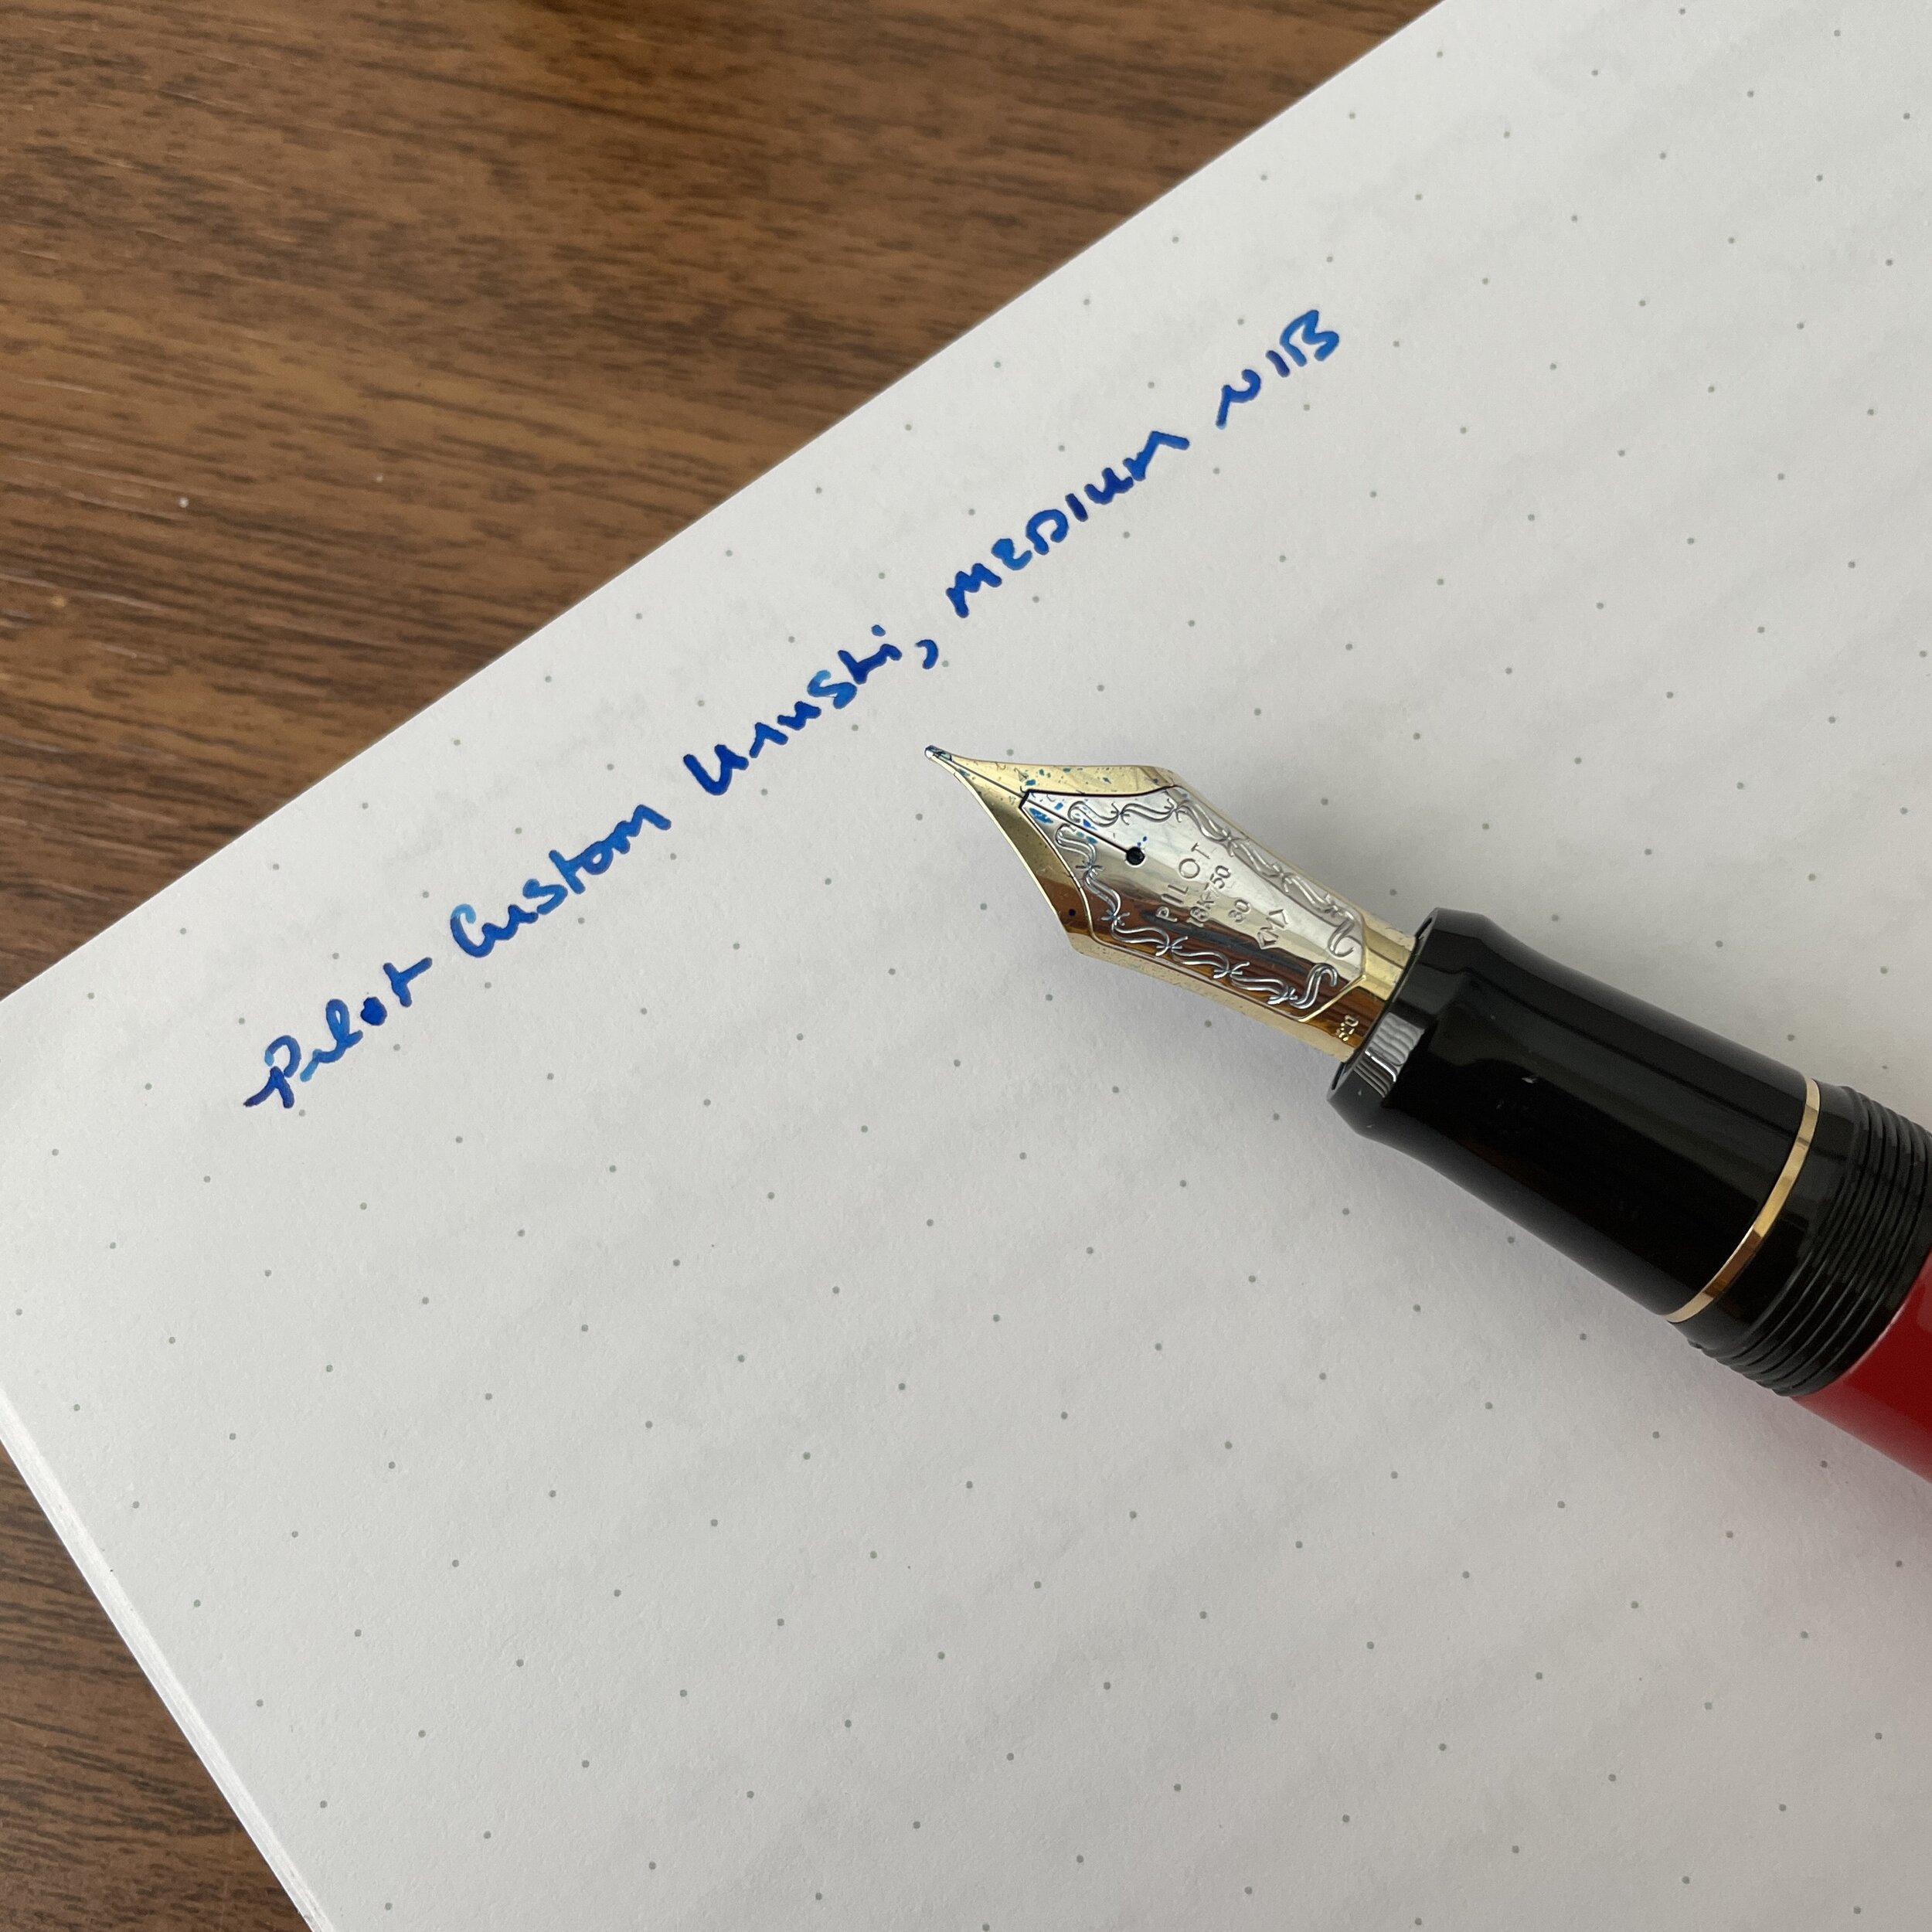 Pilot Custom Urushi, MEDIUM NIB
PILOT
18K-750
30
<M>